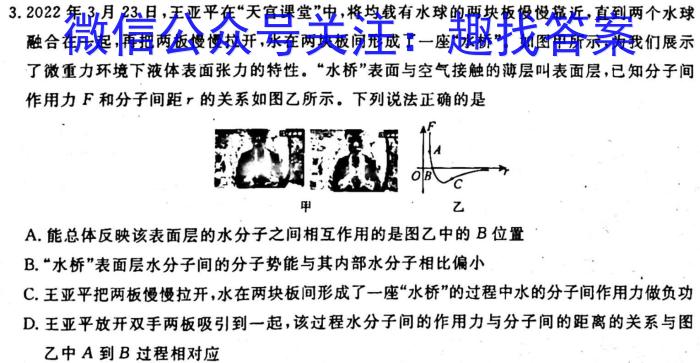 3. 2022 年 3 月 23 日,王亚平在“天宫课堂”中,将均载有水球的两块板慢慢靠近,直到两个水球
融合在一起,再把两板慢慢拉开,水在两块板间形成了一座“水桥”。如图甲所示,为我们展示
微信公众号关注:趣找答案
了微重力环境下液体表面张力的特性。“水桥”表面与空气接触的薄层叫表面层,已知分子间
作用力 F 和分子间距 r 的关系如图乙所示。下列说法正确的是
F
A
O B C r
甲 乙
A. 能总体反映该表面层的水分子之间相互作用的是图乙中的 B 位置
B. “水桥”表面层水分子间的分子势能与其内部水分子相比偏小
C. 王亚平把两板慢慢拉开,水在两块板间形成了一座“水桥”的过程中水的分子间作用力做负功
D. 王亚平放开双手两板吸引到一起,该过程水分子间的作用力与分子间的距离的关系与图
乙中 A 到 B 过程相对应